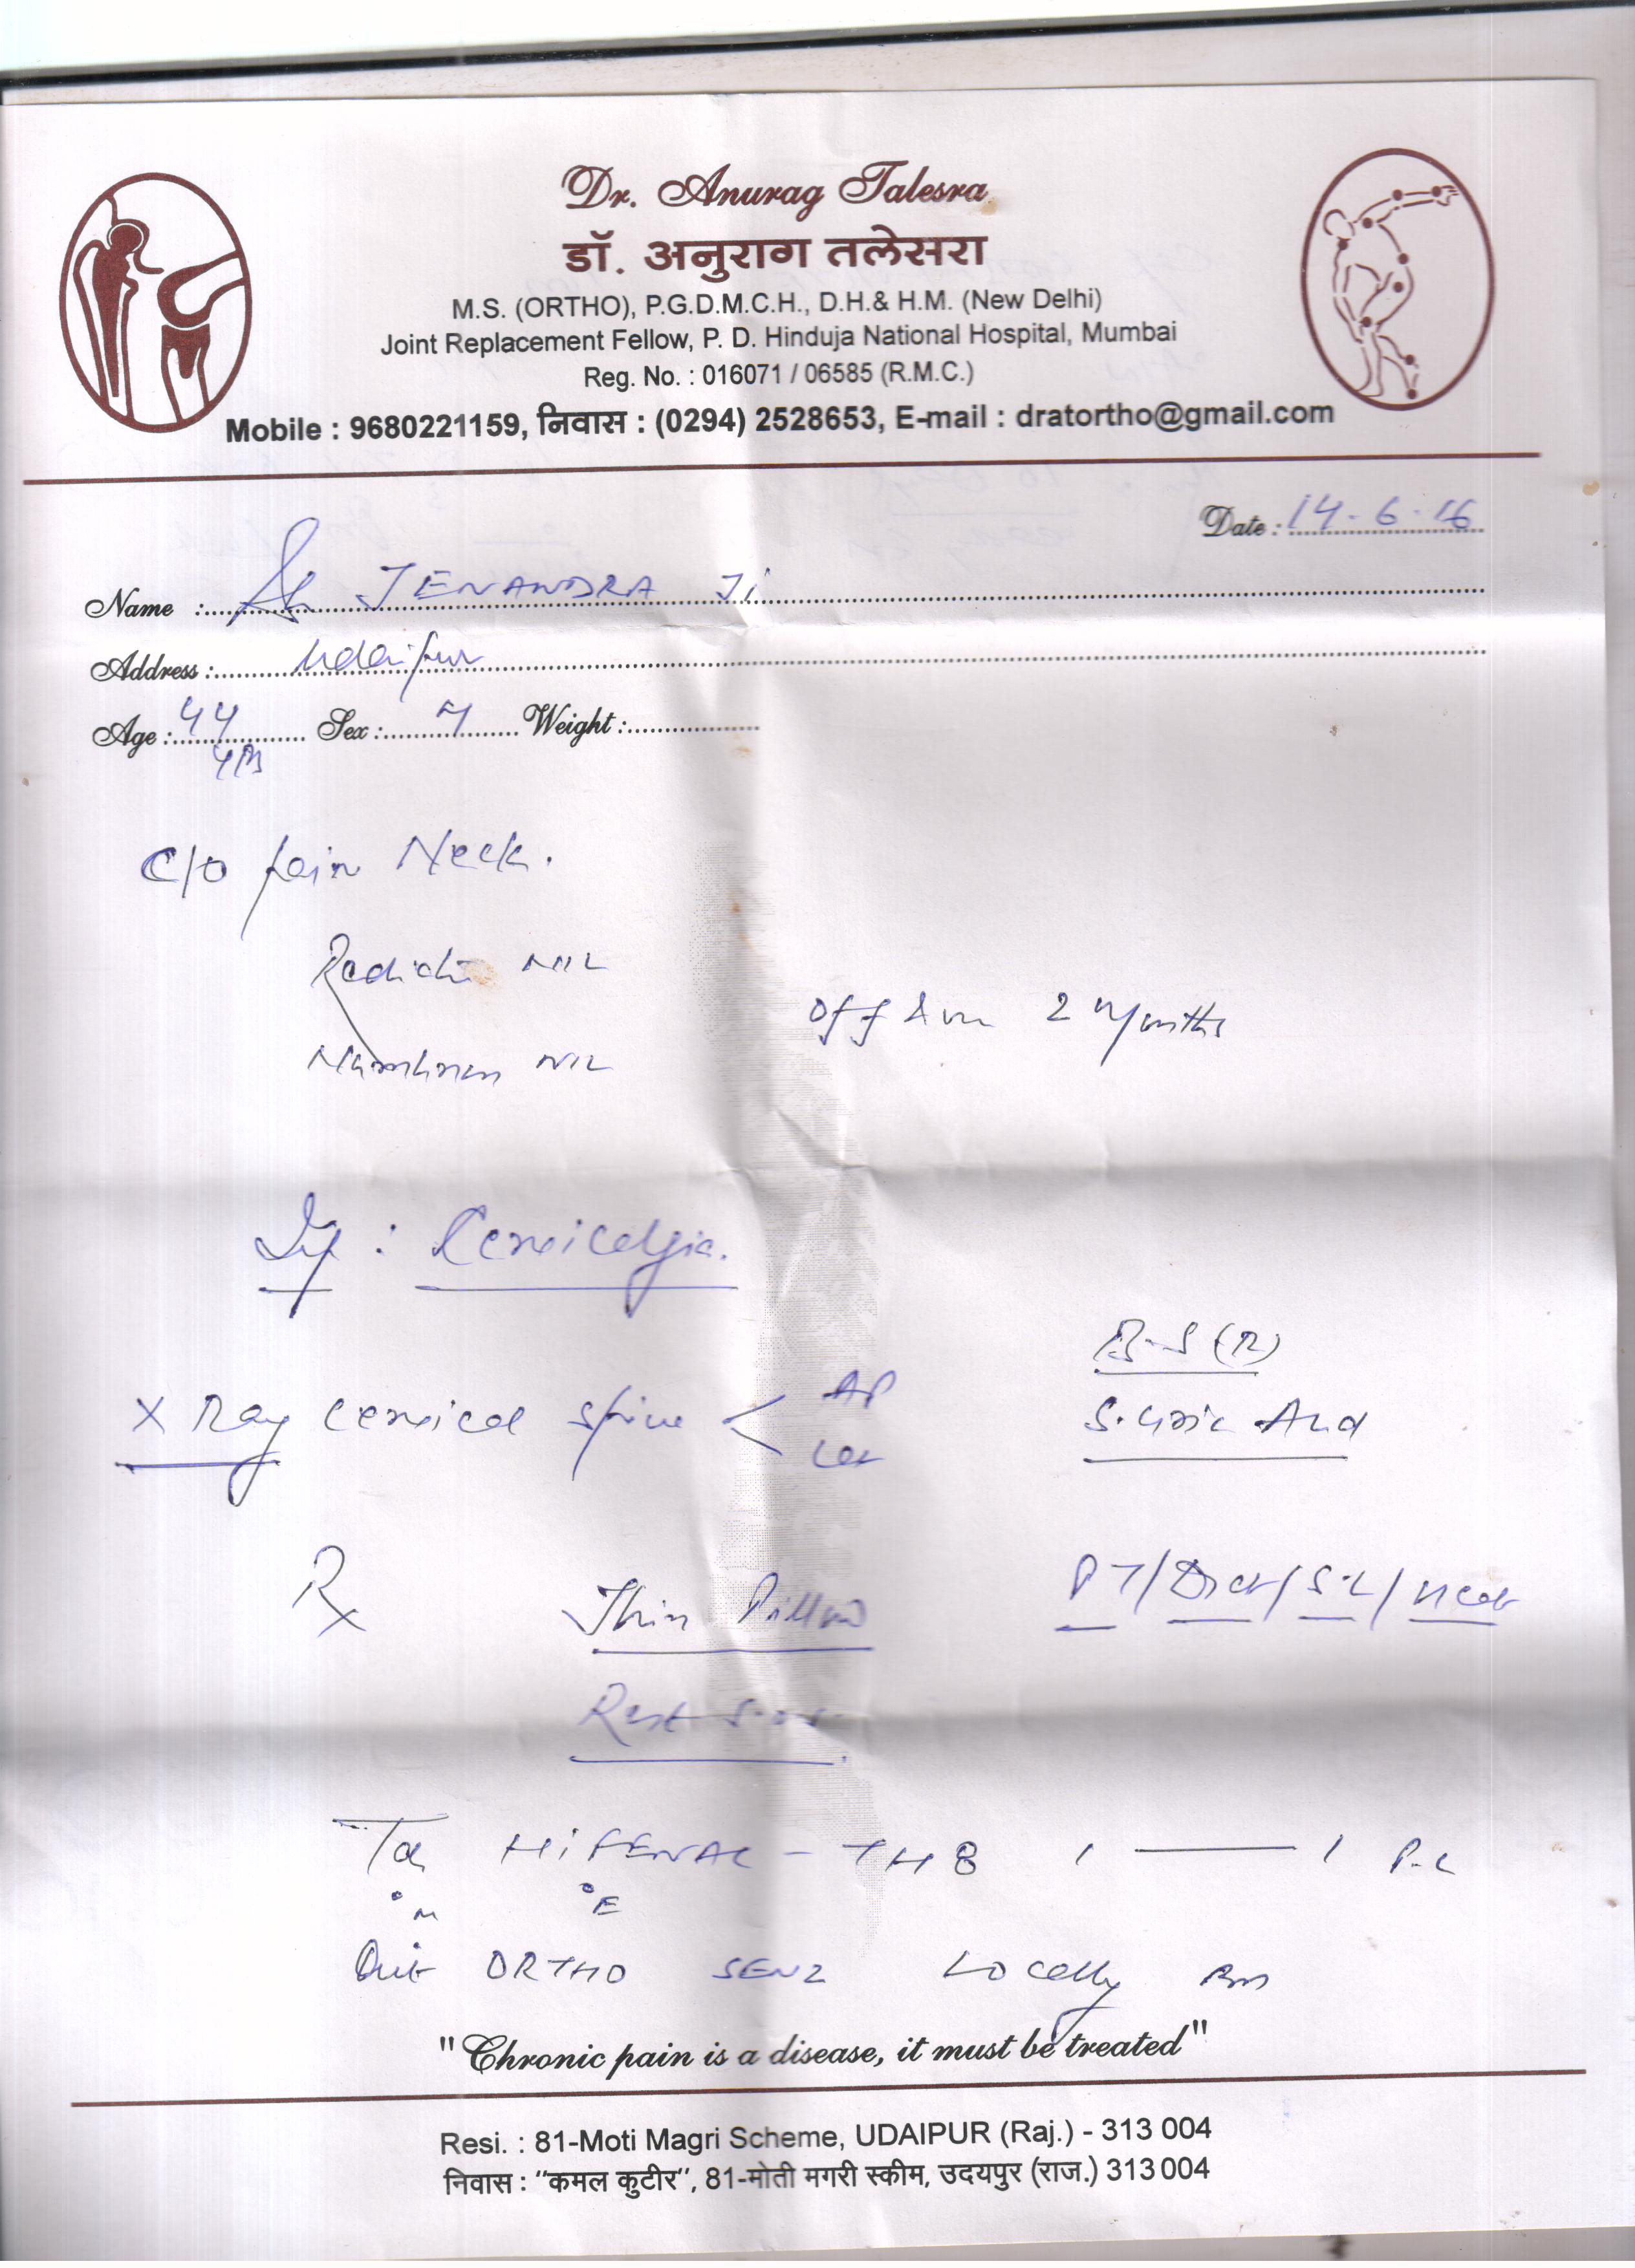 Dr. Anurag Talesra
डॉ. अनुराग तलेसरा
M.S. (ORTHO), P.G.D.M.C.H., D.H.& H.M. (New Delhi)
Joint Replacement Fellow, P. D. Hinduja National Hospital, Mumbai
Reg. No. : 016071 / 06585 (R.M.C.)
Mobile : 9680221159, निवास : (0294) 2528653, E-mail : dratortho@gmail.com
Date : 14-6-16
Name : JENANDRA Ji
Address : Udaipur
Age : 44 Sex : M Weight :
C/O pain Neck.
NIL
Off & on 2 Months
Numbness NIL
: Cervicalgia.
X Ray Cervical spine < AP
Lat
B-S (R)
S. Uric Acid
Rx
Thin Pillow
Rest S.O.S.
HIFENAC - TH 8 1 — 1 P.C
Oint ORTHO SENZ Locally
"Chronic pain is a disease, it must be treated"
Resi. : 81-Moti Magri Scheme, UDAIPUR (Raj.) - 313 004
निवास : “कमल कुटीर”, 81-मोती मगरी स्कीम, उदयपुर (राज.) 313 004